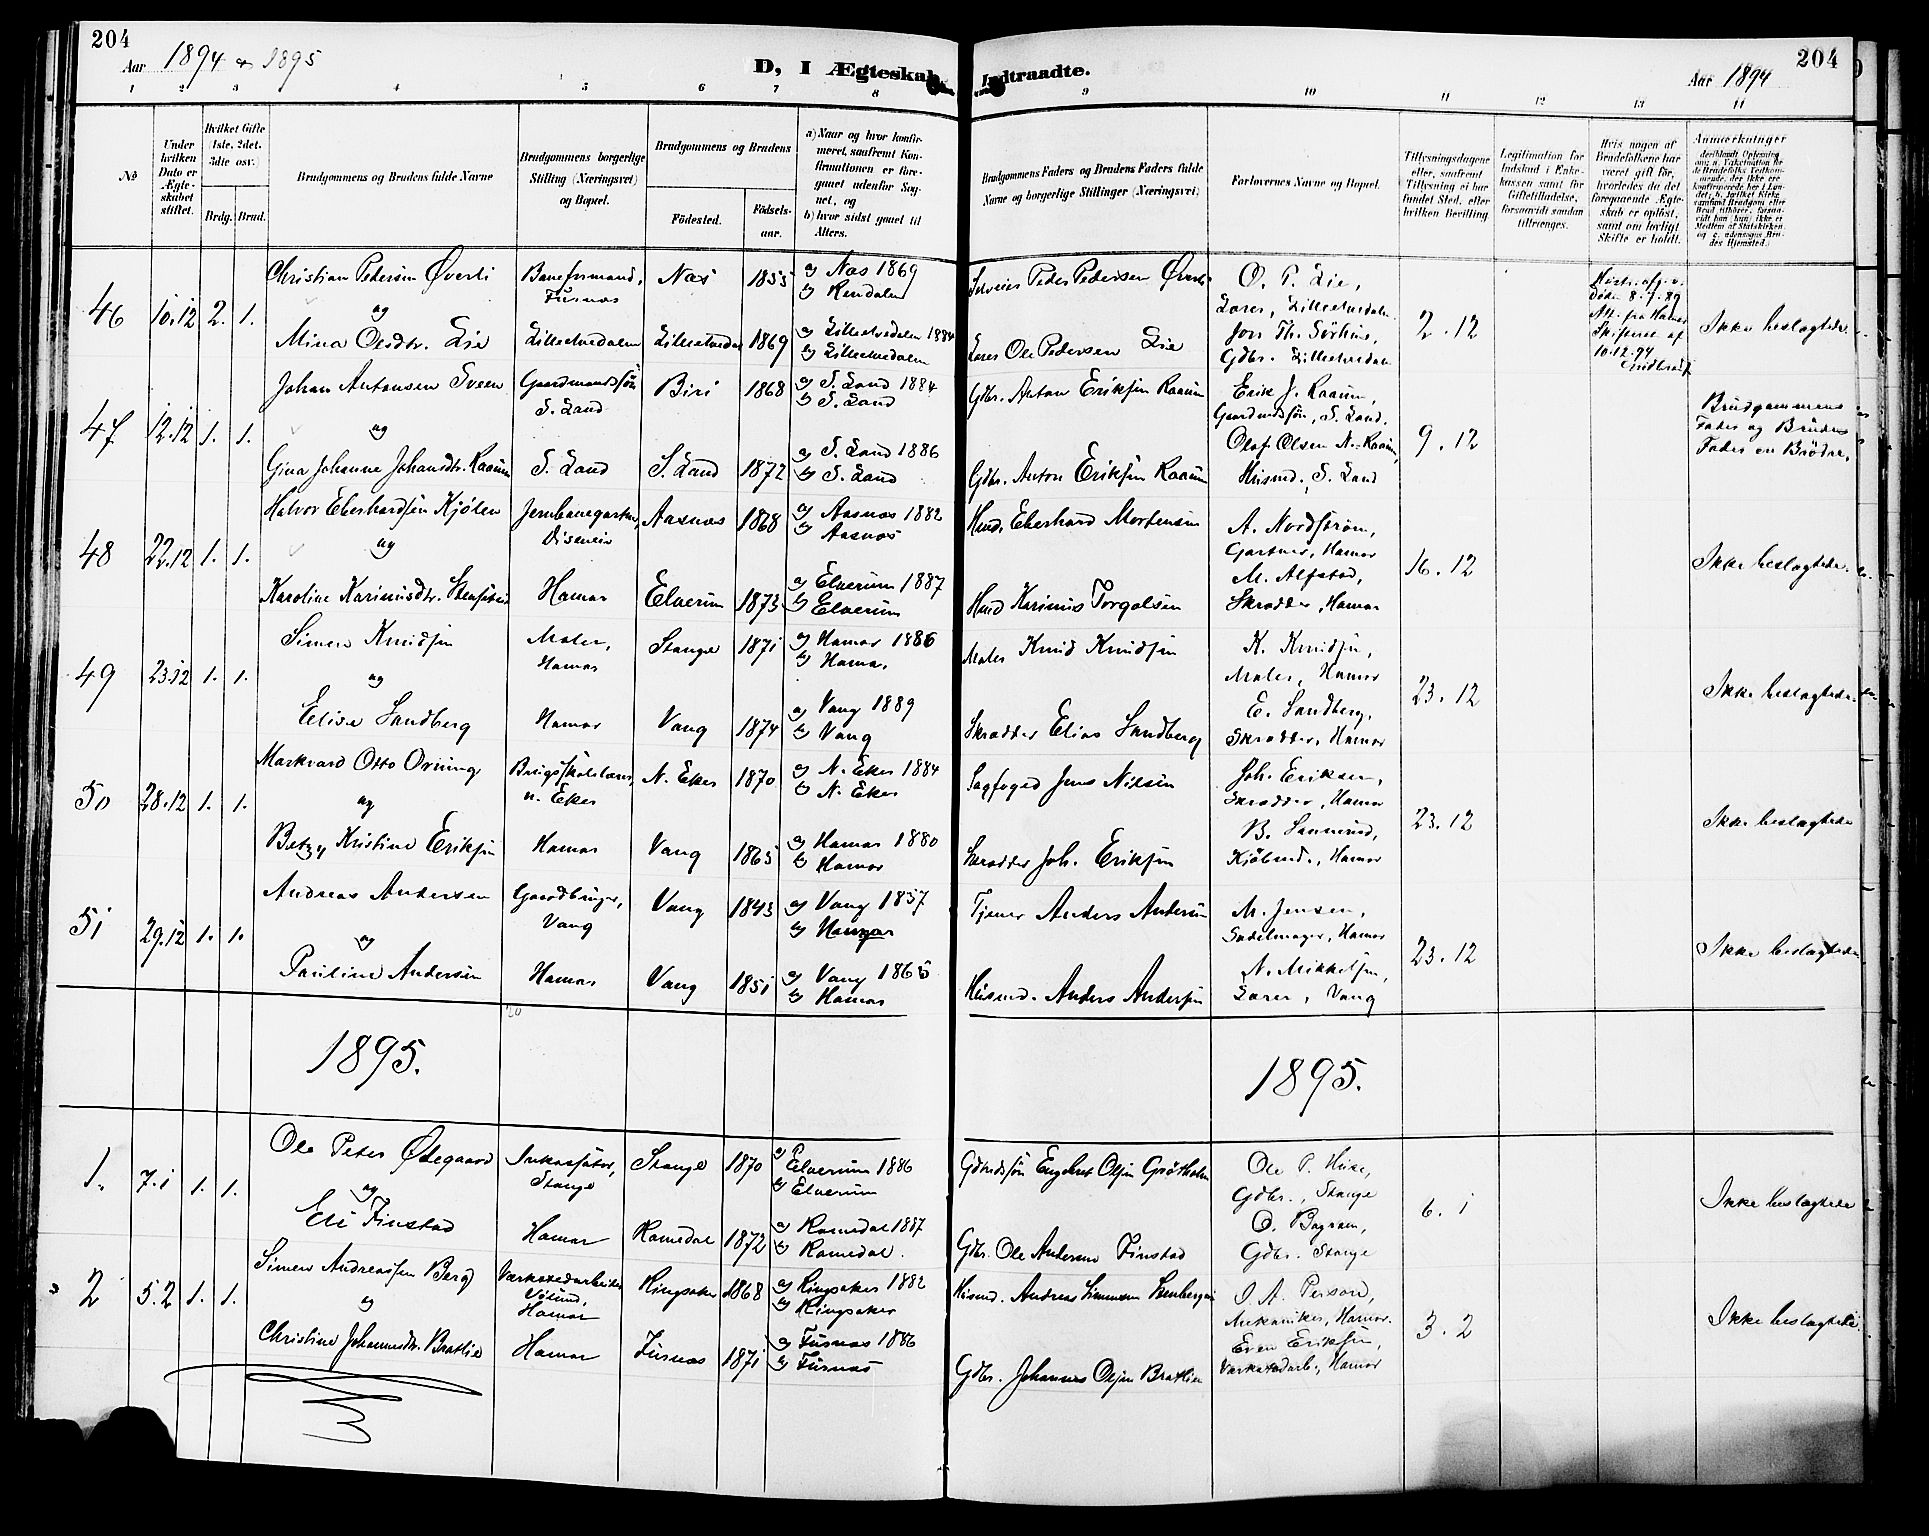 204
Aar 1894 & 1895
D, I Ægteskab Indtraadte.
Aar 1894
204
1 2 3 4 5 6 7 8 9 10 11 12 13 14
No
Under hvilken Dato er Ægteskabet stiftet.
Hvilket Gifte (1ste, 2det, 3die osv.)
Brdg. Brud.
Brudgommens og Brudens fulde Navne
Brudgommens borgerlige Stilling (Næringsvei) og Bopæl.
Brudgommens og Brudens
Födested.
Födselsaar.
a) Naar og hvor konfirmeret, saafremt Konfirmationen er foregaaet udenfor Sognet, og
b) hvor sidst gaaet til Alters.
Brudgommens Faders og Brudens Faders fulde Navne og borgerlige Stillinger (Næringsvei)
Forlovernes Navne og Bopæl.
Tillysningsdagene eller, saafremt Tillysning ei har fundet Sted, efter hvilken Bevilling
Legitimation for Indskud i Enkekassen samt for Giftetilladelse, forsaavidt saadan tiltrænges.
Hvis nogen af Brudefolkene har været gift før, hvorledes da det foregaaende Ægteskab er opløst, samt om lovligt Skifte er holdt.
Anmærkninger
46 10.12 2. 1.
Christian Pedersen Øverli
Baneformand, Furnæs
Næs 1855
a) Næs 1869
b) Rendalen
Selveier Peder Pedersen Øverli
O. P. Lie,
Lærer, Lilleelvedalen
og
Mina Olsdtr. Lie
Lilleelvedalen
Lilleelvedal 1869
a) Lilleelvedalen 1884
b) Lilleelvedalen
Lærer Ole Pedersen Lie
Jon Th. Sörhus,
Gdbr. Lilleelvedalen
2.12
Død 8.7.89
Att. fra Hamar
Skifteret af
10.12.94
Ikke beslægtede
47 12.12 1. 1.
Johan Antonsen Sveen
Gaardmandssön
S. Land
Biri 1868
a) S. Land 1884
b) S. Land
Gdbr. Anton Eriksen Raaum
Erik J. Raaum,
Gaardmdssön, S. Land.
og
Gina Johanne Johansdtr. Raaum
S. Land
S. Land 1872
a) S. Land 1886
b) S. Land
Gdbr. Anton Eriksen Raaum
Olaf Olsen N. Raaum,
Husmd., S. Land
9.12
Brudgommens
Fader og Brudens
Fader en Brödre.
48 22.12 1. 1.
Halvor Eberhardsen Kjölen
Jernbanegartner, Disenein
Aasnæs 1868
a) Aasnæs 1882
b) Aasnæs
Husmd. Eberhard Mortensen
A. Nordström,
Gartner, Hamar
og
Karoline Karinusdtr. Stensvei
Hamar
Elverum 1873
a) Elverum 1887
b) Elverum
Husmd Karinus Torgalsen
M. Alfstad,
Skrædder, Hamar
16.12
Ikke beslægtede.
49 23.12 1. 1.
Simen Knudsen
Maler,
Hamar
Stange 1871
a) Hamar 1886
b) Hamar
Maler Knud Knudsen
K. Knudsen,
Maler, Hamar
og
Elise Sandberg
Hamar
Vang 1874
a) Vang 1889
b) Vang
Skrædder Elias Sandberg
E. Sandberg,
Skrædder, Hamar
23.12
Ikke beslægtede.
50 28.12 1. 1.
Markvard Otto Orning
Brugsskolelærer,
N. Eker
N. Eker 1870
a) N. Eker 1884
b) N. Eker
Sagfoged Jens Nilsen
Joh. Eriksen,
Skrædder, Hamar
og
Betzy Kristine Eriksen
Hamar
Vang 1865
a) Hamar 1880
b) Hamar
Skrædder Joh. Eriksen
B. Sannerud,
Kjöbmd., Hamar
23.12
Ikke beslægtede
51 29.12 1. 1.
Andreas Andersen
Gaardbruger,
Vang
Vang 1843
a) Vang 1857
b) Hamar
Tjener Anders Andersen
M. Jensen,
Sadelmager, Hamar
og
Pauline Andersen
Hamar
Vang 1851
a) Vang 1865
b) Hamar
Husmd. Anders Andersen
N. Mikkelsen,
Lærer, Vang
23.12
Ikke beslægtede
20
1895.
1895.
1. 7.1 1. 1.
Ole Peter Ødegaard
Inkassatör,
Stange
Stange 1870
a) Elverum 1886
b) Elverum
Gdmdssön Engebret Olsen Grøtholm
Ole P. Huse,
Gdbr., Stange
og
Eli Finstad
Hamar
Romedal 1872
a) Romedal 1887
b) Romedal.
Gdbr. Ole Andersen Finstad
O. Bagrom,
Gdbr. Stange
6.1
Ikke beslægtede
2 5.2 1. 1.
Simen Andreassen Berg
Værkstedarbeider
Hamar
Ringsaker 1868
a) Ringsaker 1882
b) Ringsaker
Husmd. Andreas Simensen Stenbergeie
J. A. Person,
Mekaniker, Hamar.
og
Christine Johannesdtr. Bratlie
Hamar
Furnæs 1871
a) Furnæs 1886
b) Furnæs
Gdbr. Johannes Olsen Bratlien
Even Eriksen,
Værkstedarb., Hamar
3.2
Ikke beslægtede.